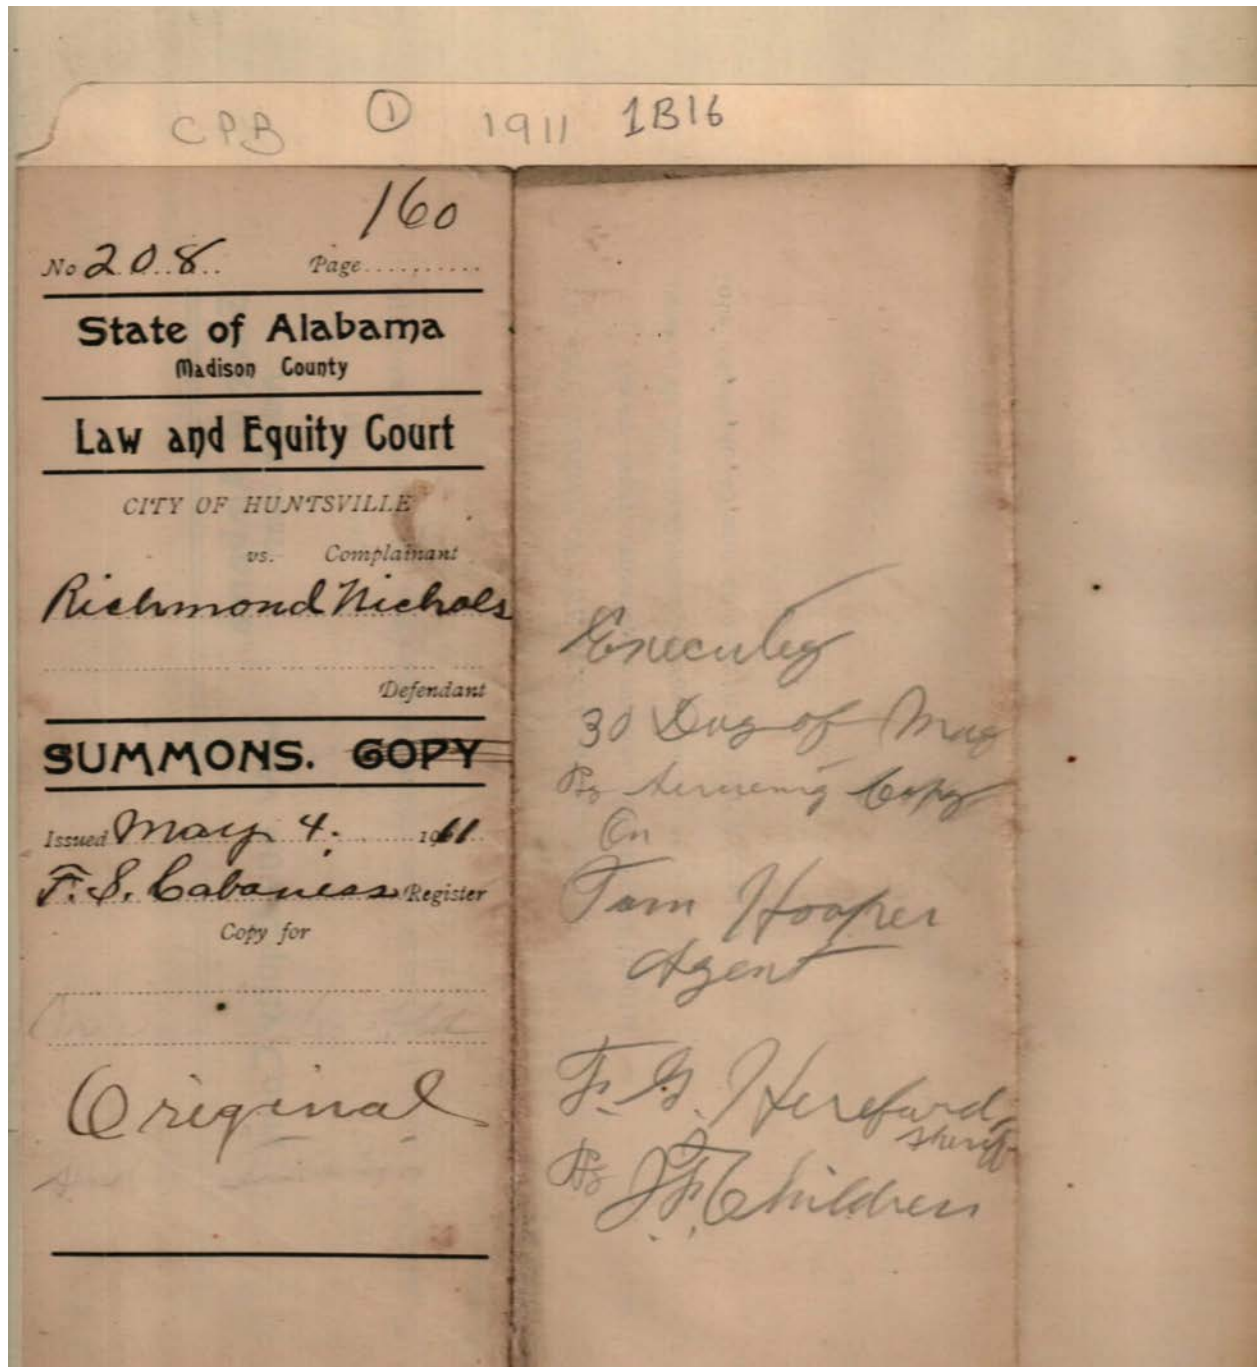 CPB ① 1911 1B16
160
No 208 Page
State of Alabama
Madison County
Law and Equity Court
CITY OF HUNTSVILLE
vs. Complainant
Richmond Nichols
Defendant
SUMMONS. COPY
Issued May 4. 1911
F. S. Cabaniss Register
Copy for
Original
Executed
30 Day of May
By serveing Copy
On
Tom Hooper
Agent
F. G. Hereford
Sheriff
By J. F. Childress